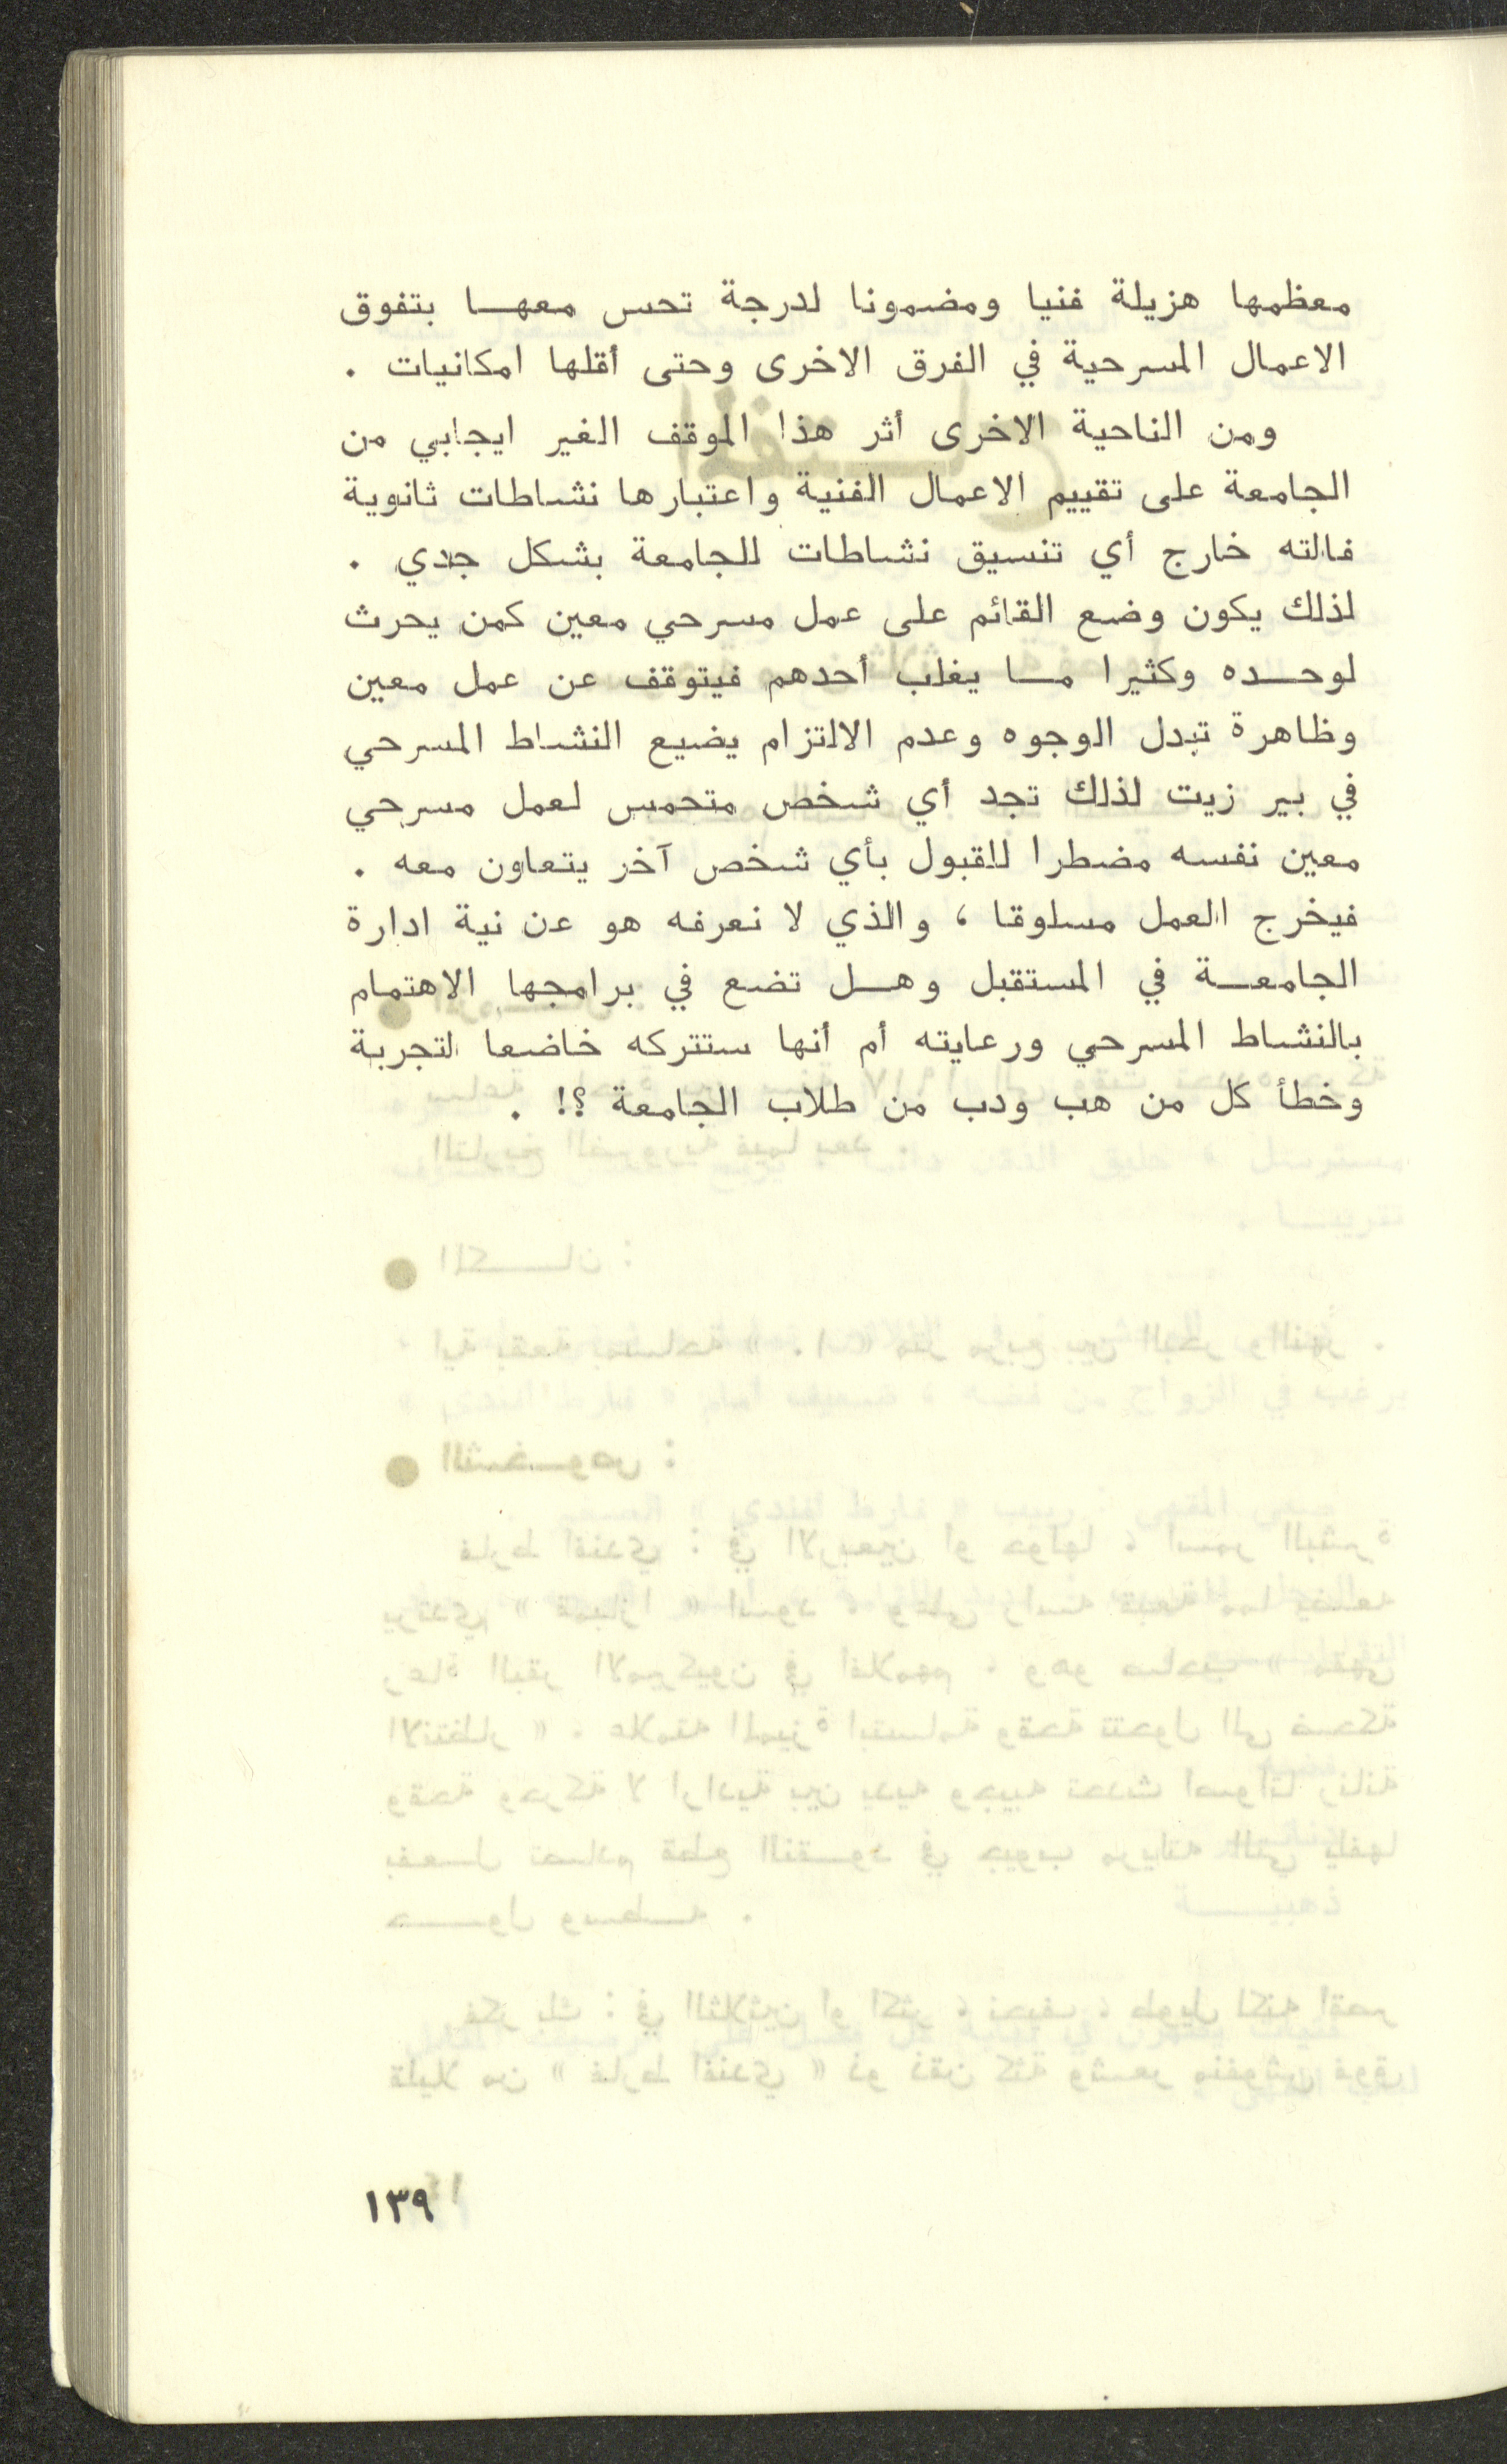 معظمها هزيلة فنيا ومضمونا لدرجة تحس معها بتفوق
الاعمال المسرحية في الفرق الاخرى وحتى أقلها امكانيات .
ومن الناحية الاخرى أثر هذا الموقف الغير ايجابي من
الجامعة على تقييم الاعمال الفنية واعتبارها نشاطات ثانوية
فالته خارج أي تنسيق نشاطات للجامعة بشكل جدي .
لذلك يكون وضع القائم على عمل مسرحي معين كمن يحرث
لوحده وكثيرا ما يغلب أحدهم فيتوقف عن عمل معين
وظاهرة تبدل الوجوه وعدم الالتزام يضيع النشاط المسرحي
في بير زيت لذلك تجد أي شخص متحمس لعمل مسرحي
معين نفسه مضطرا للقبول بأي شخص آخر يتعاون معه .
فيخرج العمل مسلوقا ، والذي لا نعرفه هو عن نية ادارة
الجامعة في المستقبل وهل تضع في برامجها الاهتمام
بالنشاط المسرحي ورعايته أم أنها ستتركه خاضعا لتجربة
وخطأ كل من هب ودب من طلاب الجامعة ؟! .
١٣٩